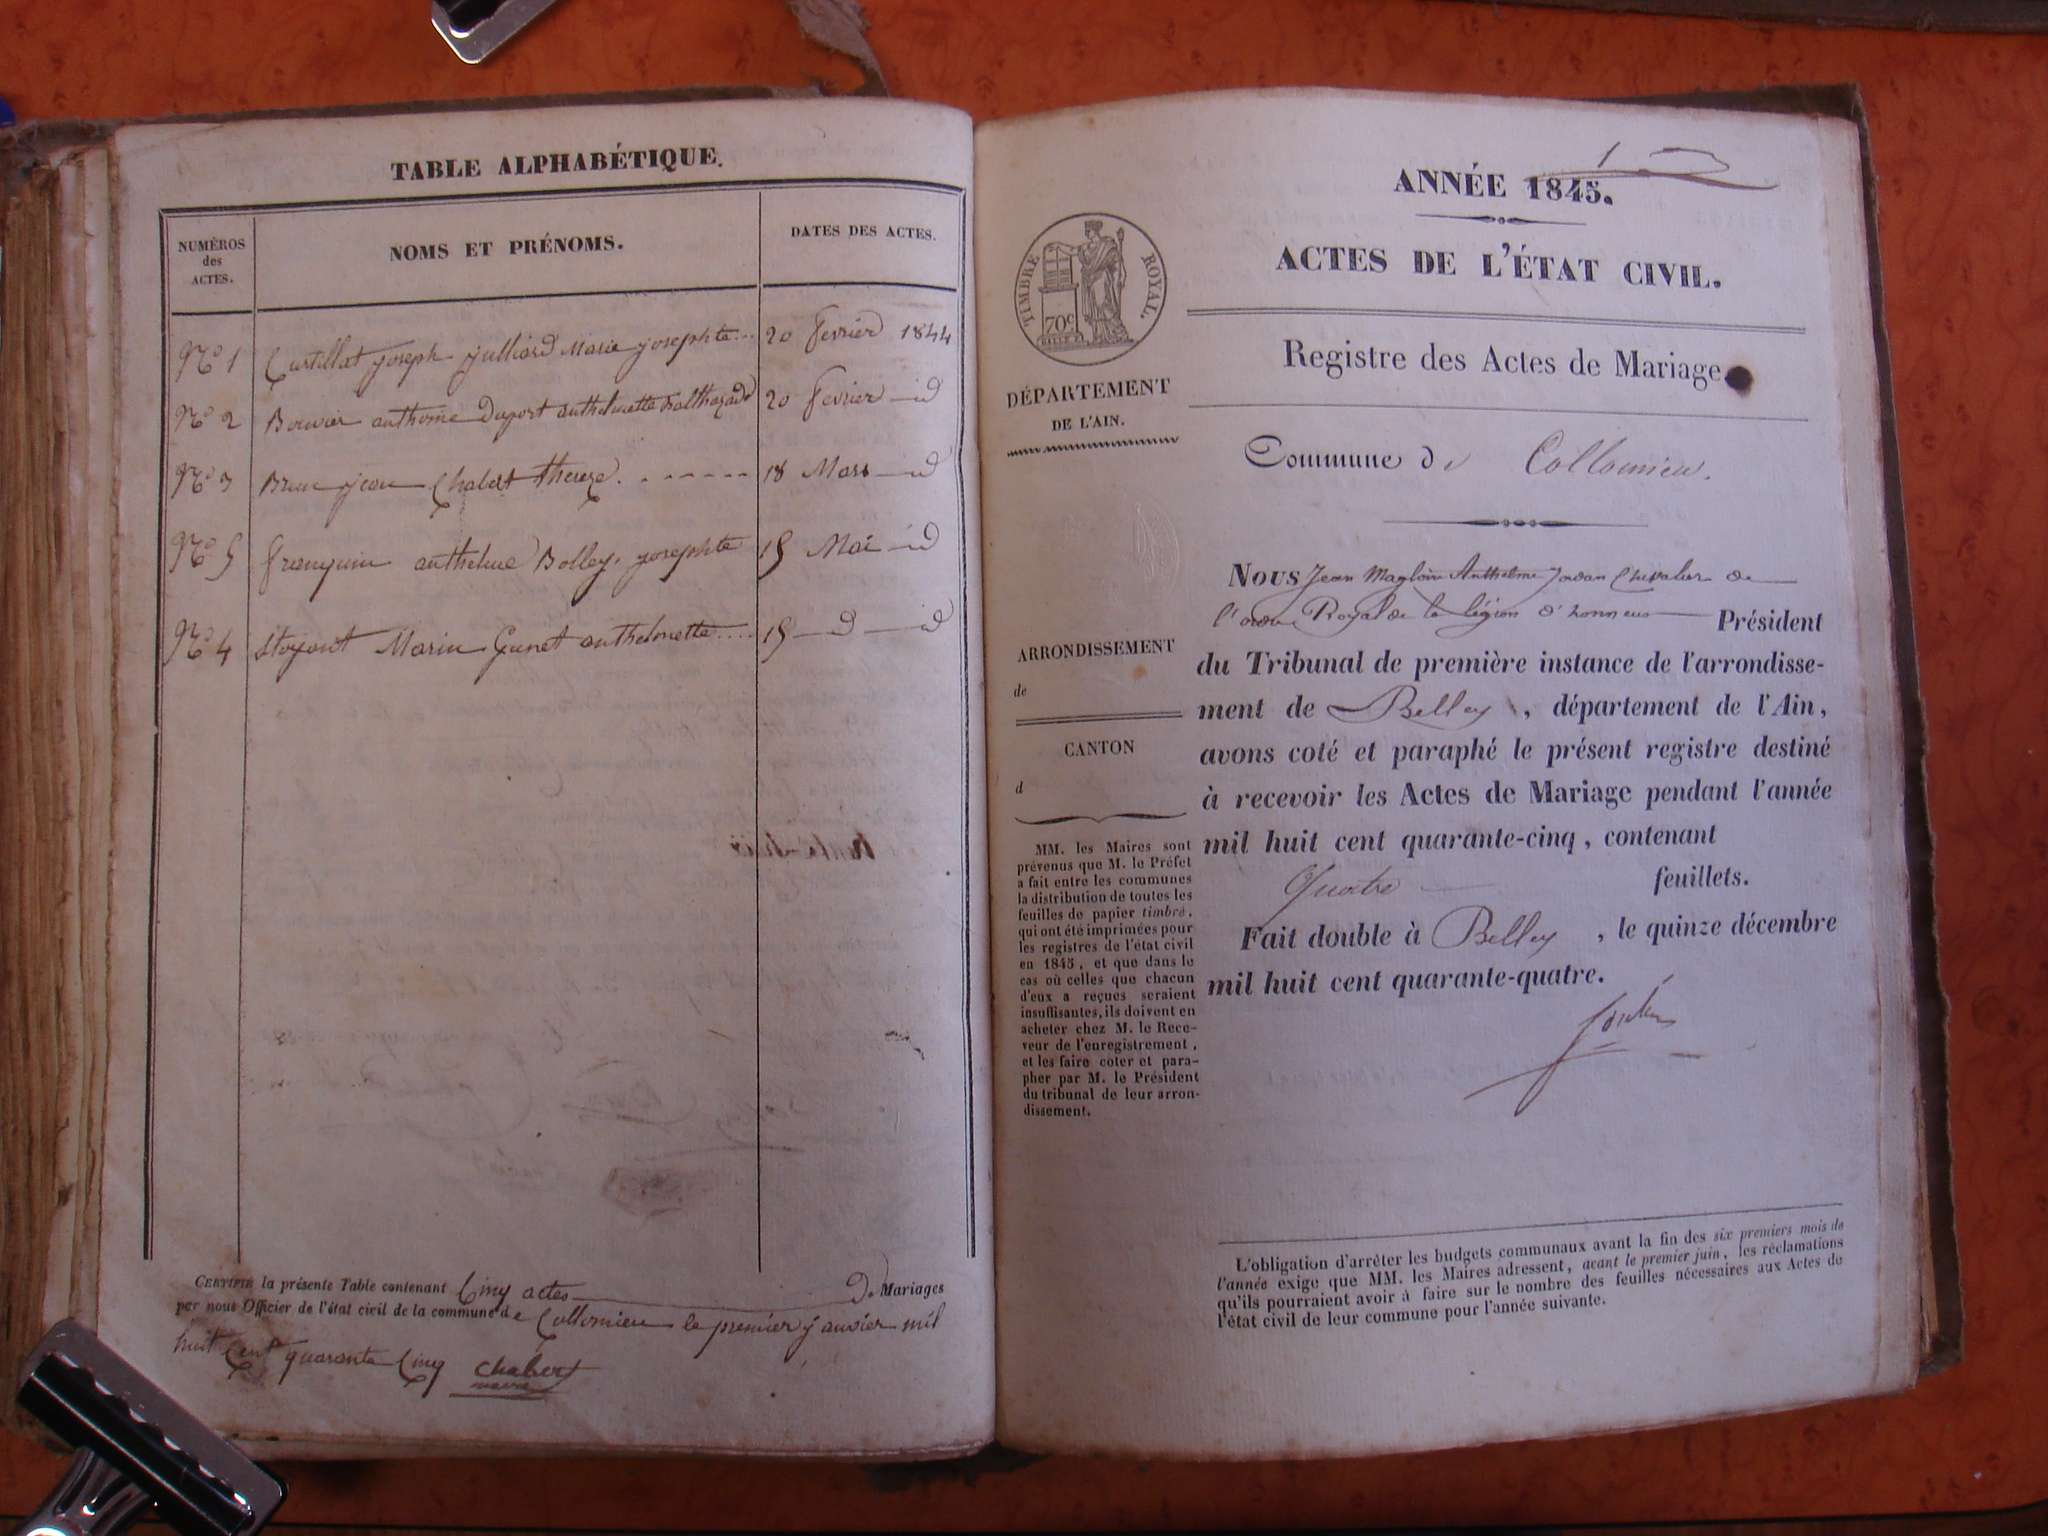 TABLE ALPHABÉTIQUE.
NUMÉROS
des
ACTES.
NOMS ET PRÉNOMS.
DATES DES ACTES.
No 1 joseph julliard Marie josephte... 20 fevrier 1844
No 2 Bouvier anthoine Duport anthelmette Balthazard 20 fevrier id
No 3 Brun jean Chabert thereze 18 Mars id
No 5 franquin anthelme Bolley josephte 15 Mai id
No 4 Marin anthelmette.... 15 d id
CERTIFIÉ la présente Table contenant Cinq actes De Mariages
par nous Officier de l'état civil de la commune de Collomieu le premier janvier mil
huit Cent quarante Cinq Chabert
maire
1
ANNÉE 1845.
ACTES DE L'ÉTAT CIVIL.
TIMBRE ROYAL.
70c
DÉPARTEMENT
DE L'AIN.
Registre des Actes de Mariage.
Commune de Collomieu.
NOUS Jean Magloire Anthelme Jordan Chevalier de
l'ordre Royal de la légion d'honneur Président
ARRONDISSEMENT
de
CANTON
d
du Tribunal de première instance de l'arrondisse-
ment de Belley, département de l'Ain,
avons coté et paraphé le présent registre destiné
à recevoir les Actes de Mariage pendant l'année
mil huit cent quarante-cinq, contenant
Quatre feuillets.
Fait double à Belley, le quinze décembre
mil huit cent quarante-quatre.
MM. les Maires sont
prévenus que M. le Préfet
a fait entre les communes
la distribution de toutes les
feuilles de papier timbré,
qui ont été imprimées pour
les registres de l'état civil
en 1845, et que dans le
cas où celles que chacun
d'eux a reçues seraient
insuffisantes, ils doivent en
acheter chez M. le Rece-
veur de l'enregistrement,
et les faire coter et para-
pher par M. le Président
du tribunal de leur arron-
dissement.
L'obligation d'arrêter les budgets communaux avant la fin des six premiers mois de
l'année exige que MM. les Maires adressent, avant le premier juin, les réclamations
qu'ils pourraient avoir à faire sur le nombre des feuilles nécessaires aux Actes de
l'état civil de leur commune pour l'année suivante.